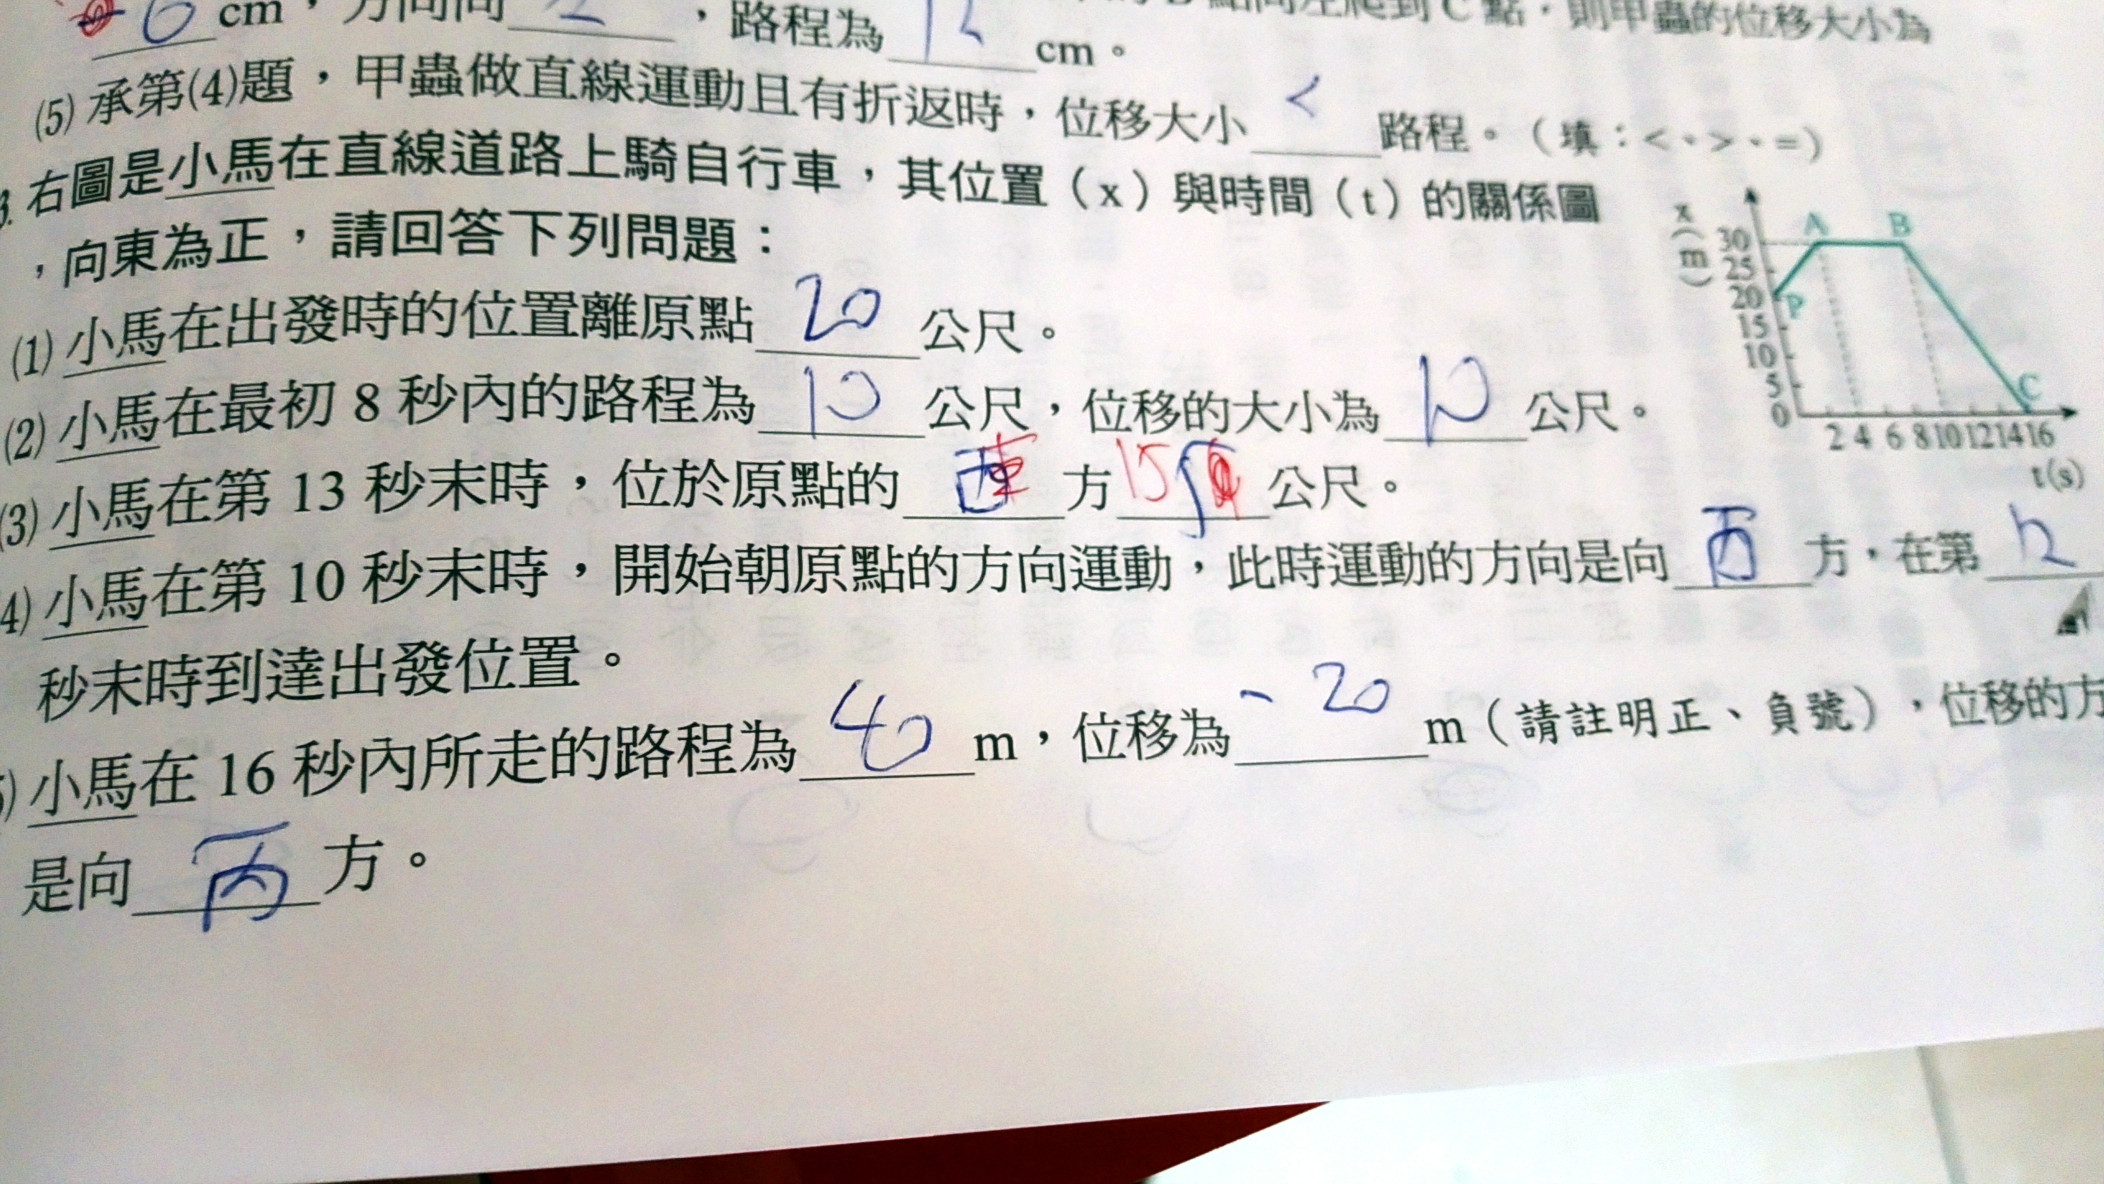 6 cm，方向向 左 ，路程為 12 cm。
點向左爬到C點，則甲蟲的位移大小為
(5) 承第(4)題，甲蟲做直線運動且有折返時，位移大小 < 路程。（填：<、>、=）
3. 右圖是小馬在直線道路上騎自行車，其位置（x）與時間（t）的關係圖
，向東為正，請回答下列問題：
(1) 小馬在出發時的位置離原點 20 公尺。
(2) 小馬在最初 8 秒內的路程為 10 公尺，位移的大小為 10 公尺。
(3) 小馬在第 13 秒末時，位於原點的 東 方 15 公尺。
4) 小馬在第 10 秒末時，開始朝原點的方向運動，此時運動的方向是向 西 方，在第 12
秒末時到達出發位置。
5) 小馬在 16 秒內所走的路程為 40 m，位移為 -20 m（請註明正、負號），位移的方
是向 西 方。
x(m)
30
25
20
15
10
5
0
A B
P
C
2 4 6 8 10 12 14 16
t(s)